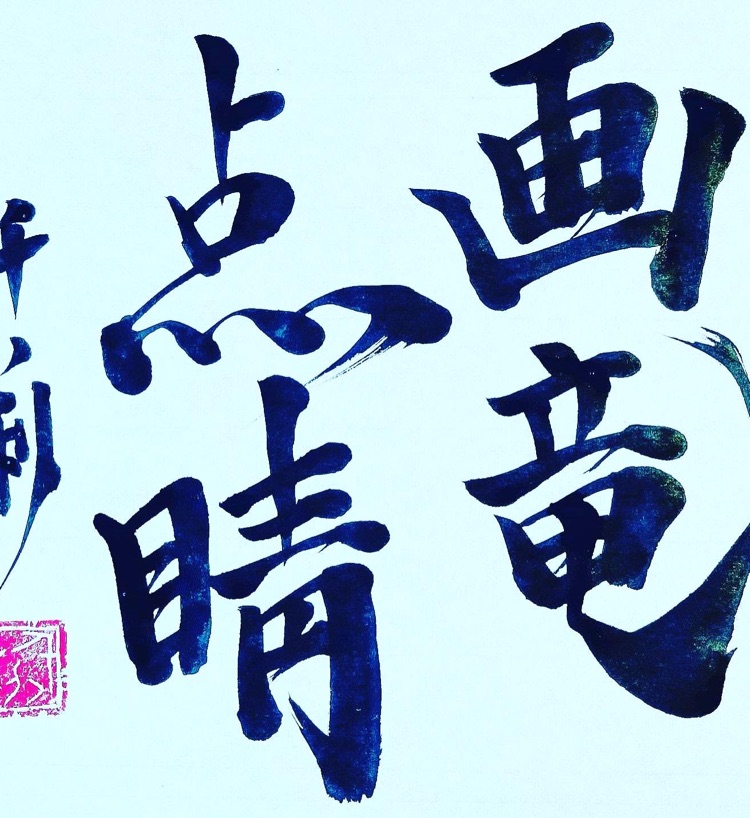 画竜
点睛